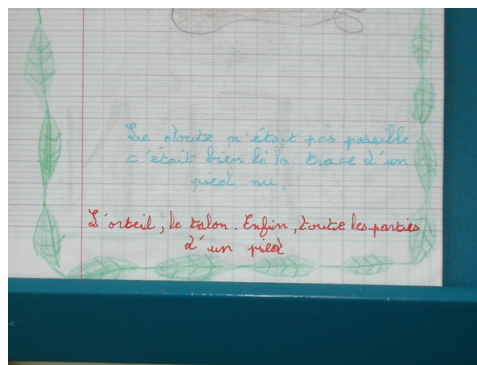 Le doute n'était pas possible
c'était bien là la trace d'un
pied nu.
L'orteil, le talon. Enfin, toute les parties
d'un pied